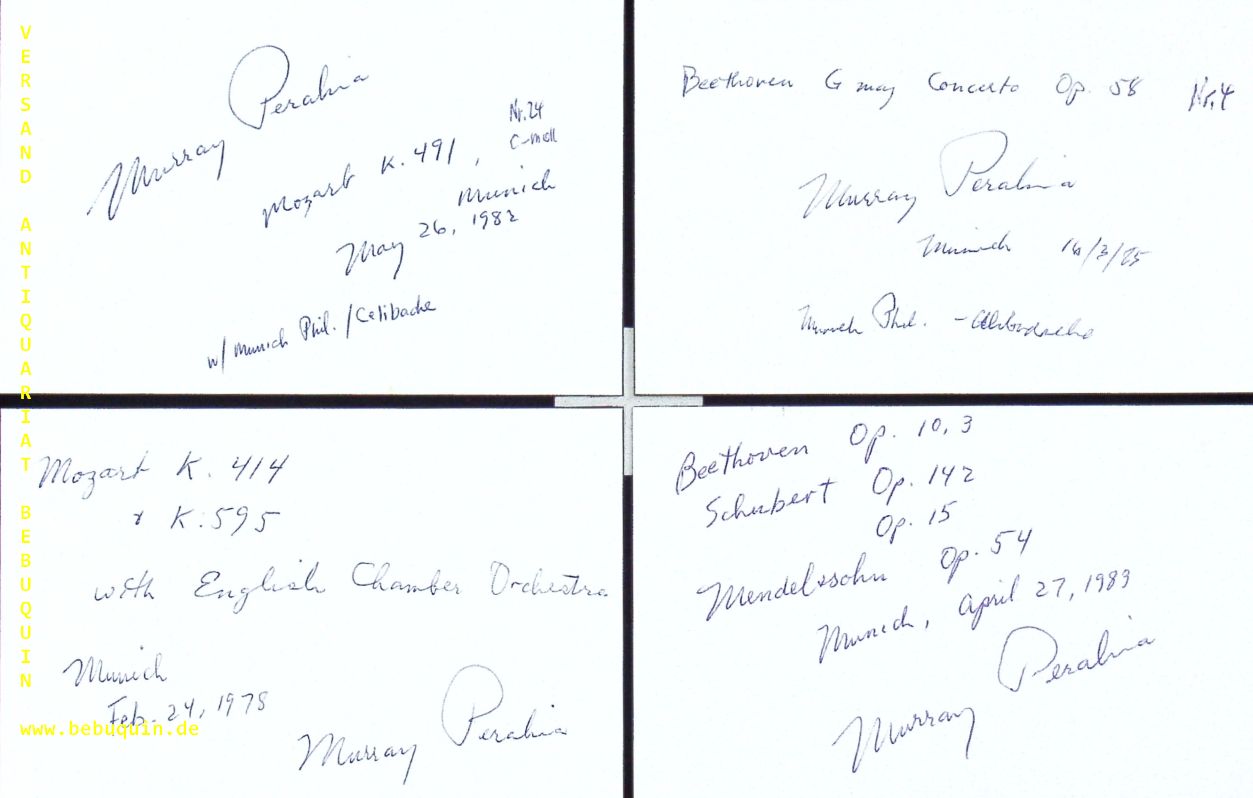 VERSAND ANTIQUARIAT BEBUQUIN
www.bebuquin.de
Murray Perahia
Mozart K. 491,
Nr. 24
C-moll
Munich
May 26, 1982
w/ Munich Phil. / Celibache
Beethoven G maj Concerto Op. 58 Nr. 4
Murray Perahia
Munich 16/3/85
Munich Phil. -
Mozart K. 414
& K. 595
with English Chamber Orchestra
Munich
Feb. 24, 1978
Murray Perahia
Beethoven Op. 10, 3
Schubert Op. 142
Op. 15
Mendelssohn Op. 54
Munich, April 27, 1983
Murray Perahia